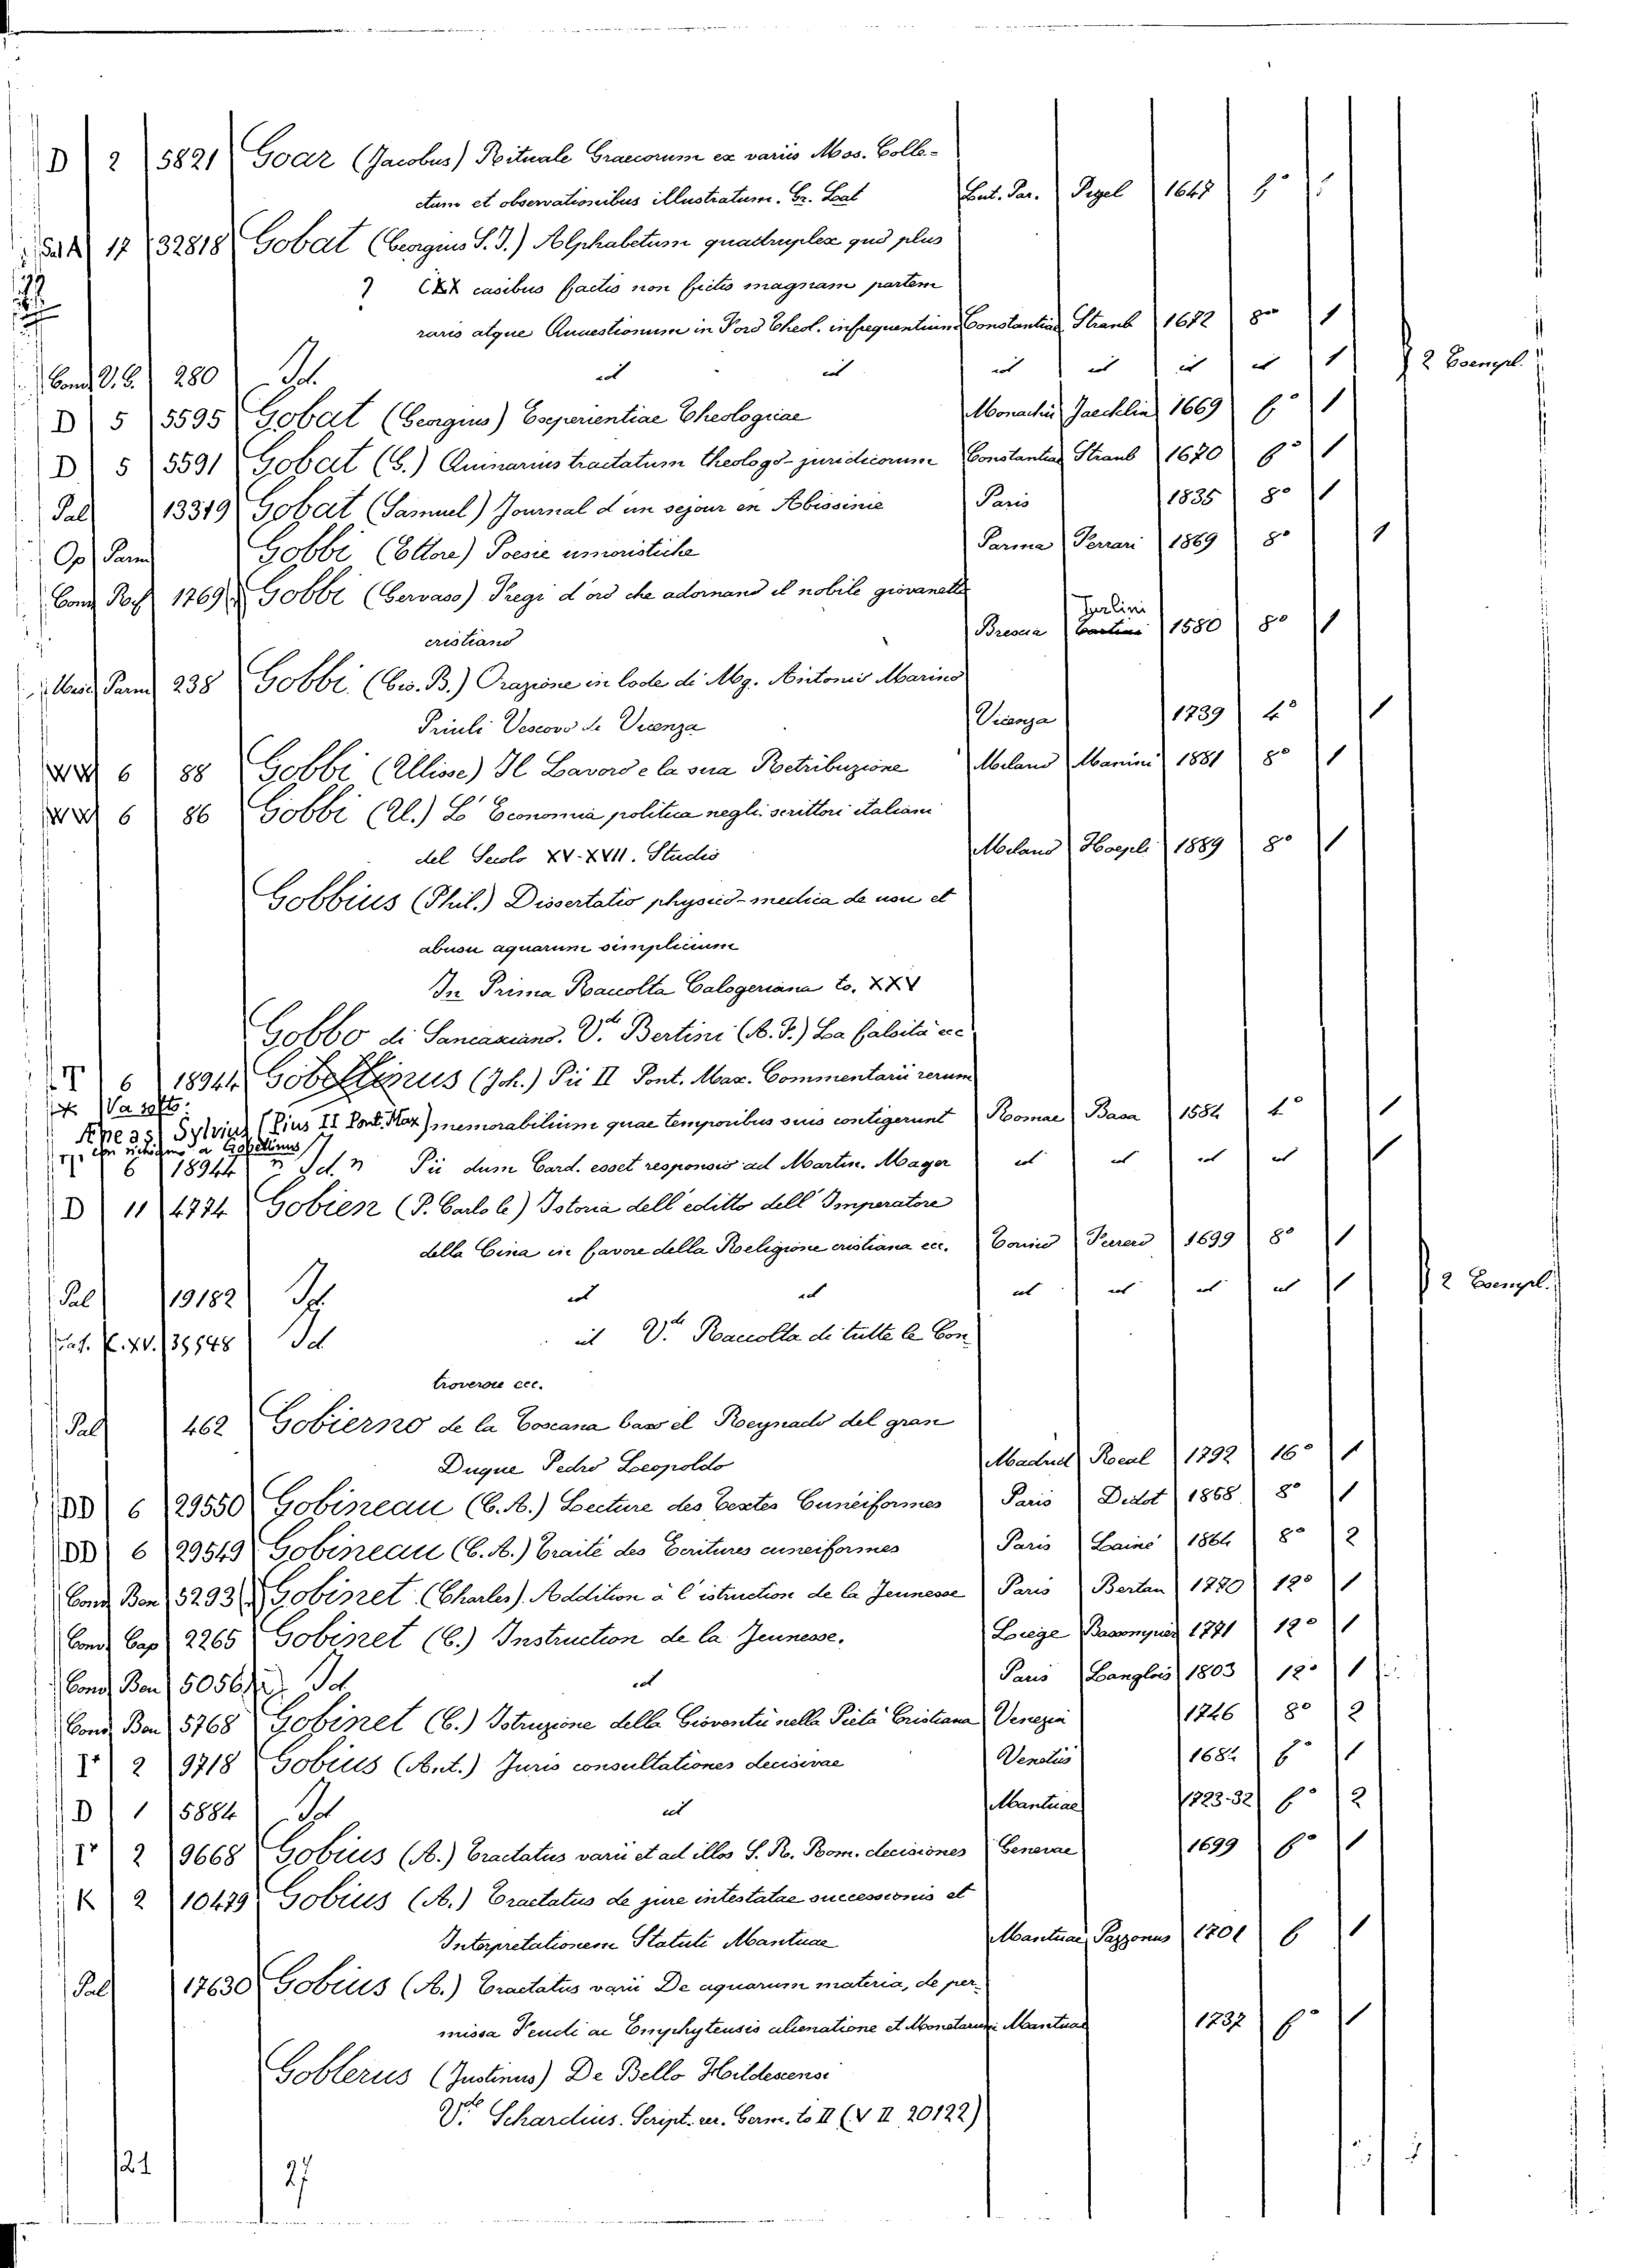 D 2 5821 Goar (Jacobus) Rituale Graecorum ex variis Mss. Colle-
ctum et observationibus illustratum. Gr. Lat Lut. Par. Pigel 1647 f°
17 32818 Gobat (Georgius S. J.) Alphabetum quadruplex quo plus
CXX casibus factis non fictis magnam partem
raris atque Quaestionum in Foro Theol. infrequentium Constantiae Straub 1672 8° 1
Conv. 280 Id. id id id id id id 1 2 Esempl.
D 5 5595 Gobat (Georgius) Experientiae Theologicae Monachii Jaecklin 1669 f° 1
D 5 5591 Gobat (G.) Quinarius tractatum theologo-juridicorum Constantiae Straub 1670 f° 1
Pal 13319 Gobat (Samuel) Journal d'un sejour en Abissinie Paris 1835 8° 1
Op Parm Gobbi (Ettore) Poesie umoristiche Parma Ferrari 1869 8° 1
Conv 1769 Gobbi (Gervaso) Fregi d'oro che adornano il nobile giovanetto
cristiano Brescia Turlini 1580 8° 1
Misc Parm 238 Gobbi (Gio. B.) Orazione in lode di Mg. Antonio Marino
Priuli Vescovo di Vicenza Vicenza 1739 4° 1
WW 6 88 Gobbi (Ulisse) Il Lavoro e la sua Retribuzione Milano Manini 1881 8° 1
WW 6 86 Gobbi (U.) L'Economia politica negli scrittori italiani
del Secolo XV-XVII. Studio Milano Hoepli 1889 8° 1
Gobbius (Phil.) Dissertatio physico-medica de usu et
abusu aquarum simplicium
In Prima Raccolta Calogeriana to. XXV
Gobbo di Sancasciano. V. Bertini (A. F.) La falsità ecc
6 18944 Gobellinus (Joh.) Pii II Pont. Max. Commentarii rerum
Va sotto:
Aeneas Sylvius (Pius II Pont. Max) memorabilium quae temporibus suis contigerunt Romae Basa 1584 4° 1
a Gobellinus
6 18944 " Id. " Pii dum Card. esset responsio ad Martin. Mayer id id id id 1
D 11 4774 Gobien (P. Carlo le) Istoria dell'editto dell'Imperatore
della Cina in favore della Religione cristiana ecc. Torino 1699 8° 1
Pal 19182 Id. id id id id id id 1 2 Esempl.
XV. Id id Vde. Raccolta di tutte le Con
troversie ecc.
Pal 462 Gobierno de la Toscana baxo el Reynado del gran
Duque Pedro Leopoldo Madrid Real 1792 16° 1
DD 6 29550 Gobineau (C. A.) Lecture des Textes Cuneiformes Paris Didot 1868 8° 1
DD 6 29549 Gobineau (C. A.) Traité des Ecritures cuneiformes Paris Lainé 1864 8° 2
Conv Ben 5293 Gobinet (Charles). Addition à l'istruction de la Jeunesse Paris Bertan 1770 12° 1
Conv Cap 2265 Gobinet (C.) Instruction de la Jeunesse. Liege 1771 12° 1
Conv Ben 5056 Id id Paris Langlois 1803 12° 1
Conv Ben 5768 Gobinet (C.) Istruzione della Gioventù nella Pietà Cristiana Venezia 1746 8° 2
I 2 9718 Gobius (Ant.) Juris consultationes decisivae Venetiis 1684 f° 1
D 1 5884 Id id Mantuae 1723-32 f° 2
I 2 9668 Gobius (A.) Tractatus varii et ad illos S. R. Rom. decisiones Genevae 1699 f° 1
K 2 10479 Gobius (A.) Tractatus de jure intestatae successionis et
Interpretationem Statuti Mantuae Mantuae Pazzonus 1701 f 1
Pal 17630 Gobius (A.) Tractatus varii De aquarum materia, de per-
missa Feudi ac Emphyteusis alienatione et Monetarum Mantuae 1737 f° 1
Goblerus (Justinus) De Bello Hildescensi
Vde. Schardius. Script. rer. Germ. to II (V II 20122)
21 27